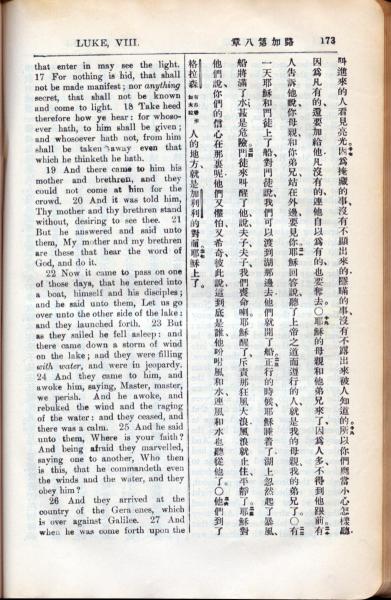 LUKE, VIII.
路加第八章
173
that enter in may see the light.
17 For nothing is hid, that shall
not be made manifest; nor anything
secret, that shall not be known
and come to light. 18 Take heed
therefore how ye hear: for whoso-
ever hath, to him shall be given;
and whosoever hath not, from him
shall be taken away even that
which he thinketh he hath.
19 And there came to him his
mother and brethren, and they
could not come at him for the
crowd. 20 And it was told him,
Thy mother and thy brethren stand
without, desiring to see thee. 21
But he answered and said unto
them, My mother and my brethren
are these that hear the word of
God, and do it.
22 Now it came to pass on one
of those days, that he entered into
a boat, himself and his disciples;
and he said unto them, Let us go
over unto the other side of the lake:
and they launched forth. 23 But
as they sailed he fell asleep: and
there came down a storm of wind
on the lake; and they were filling
with water, and were in jeopardy.
24 And they came to him, and
awoke him, saying, Master, master,
we perish. And he awoke, and
rebuked the wind and the raging
of the water: and they ceased, and
there was a calm. 25 And he said
unto them, Where is your faith?
And being afraid they marvelled,
saying one to another, Who then
is this, that he commandeth even
the winds and the water, and they
obey him?
26 And they arrived at the
country of the Gerasenes, which
is over against Galilee. 27 And
when he was come forth upon the
叫進來的人看見亮光。因爲掩藏的事、沒有不顯出來的、隱瞞的事、沒有不露出來被人知道的。所以你們應當小心怎樣聽。
因爲凡有的、還要加給他、凡沒有的、連他自以爲有的、也要奪去。○耶穌的母親和他弟兄來了、因爲人多、不得到他跟前。有
人告訴他說、你母親和你弟兄、站在外邊、要見你。耶穌回答說、聽了上帝之道而遵行的人、就是我的母親、我的弟兄了。○有
一天耶穌和門徒上了船、對門徒說、我們可以渡到湖那邊去。他們就開了船。正行的時候、耶穌睡着了。湖上忽然起了暴風、
船將滿了水、甚是危險。門徒來叫醒了他、說、夫子、夫子、我們喪命喇。耶穌醒了、斥責那狂風大浪、風浪就止住平靜了。耶穌對
他們說、你們的信心在那裏呢。他們又懼怕、又希奇、彼此說、這到底是誰、他吩咐風和水、連風和水也聽從他了。○他們到了
格拉森人的地方、就是加利利的對面。耶穌上了